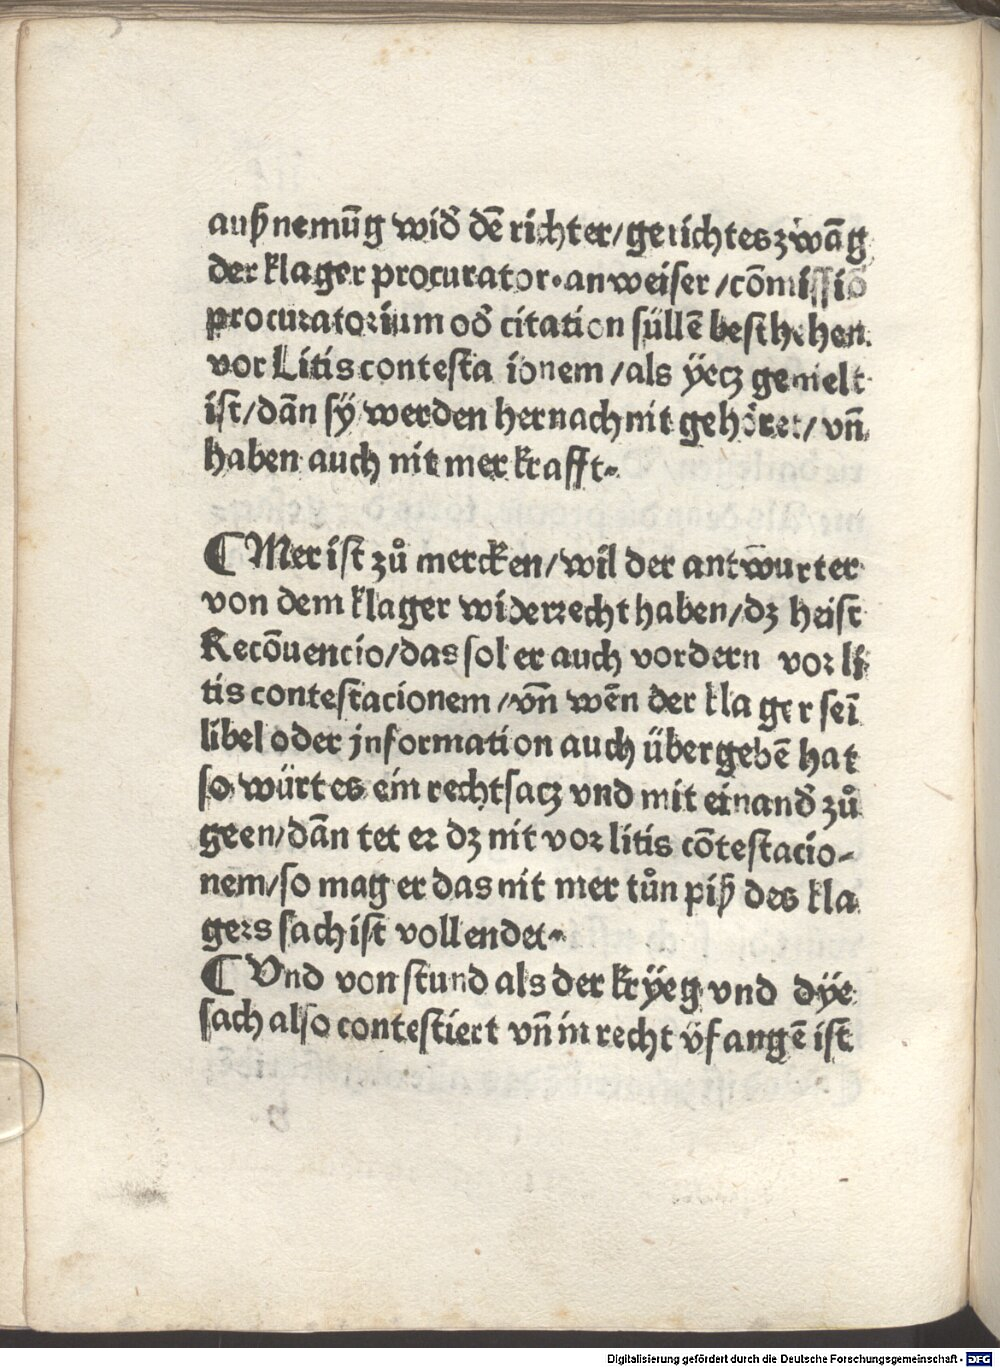 außnemūg wid̄ dē richter/gerichteszwāg
der klager procurator·anweiser/cōmissiō
procuratorium od̄ citation süllē beschehen
vor Litis contesta ionem/als ÿecz gemelt
ist/dān sÿ werden hernach nit gehöret/vn̄
haben auch nit mer krafft·
¶ Mer ist zů mercken/wil der antw̄urter
von dem klager widerrecht haben/dz heist
Recōuencio/das sol er auch vordern vor li
tis contestacionem/vn̄ wēn der klager seī
libel oder jnformation auch übergebē hat
so würt es ein rechtsacz vnd mit einand̄ zů
geen/dān tet er dz nit vor litis cōtestacio-
nem/so mag er das nit mer tůn piß des kla
gers sach ist vollendet·
¶ Vnd von stund als der krÿeg vnd dÿe
sach also contestiert vn̄ in recht v̄fangē ist
Digitalisierung gefördert durch die Deutsche Forschungsgemeinschaft - DFG